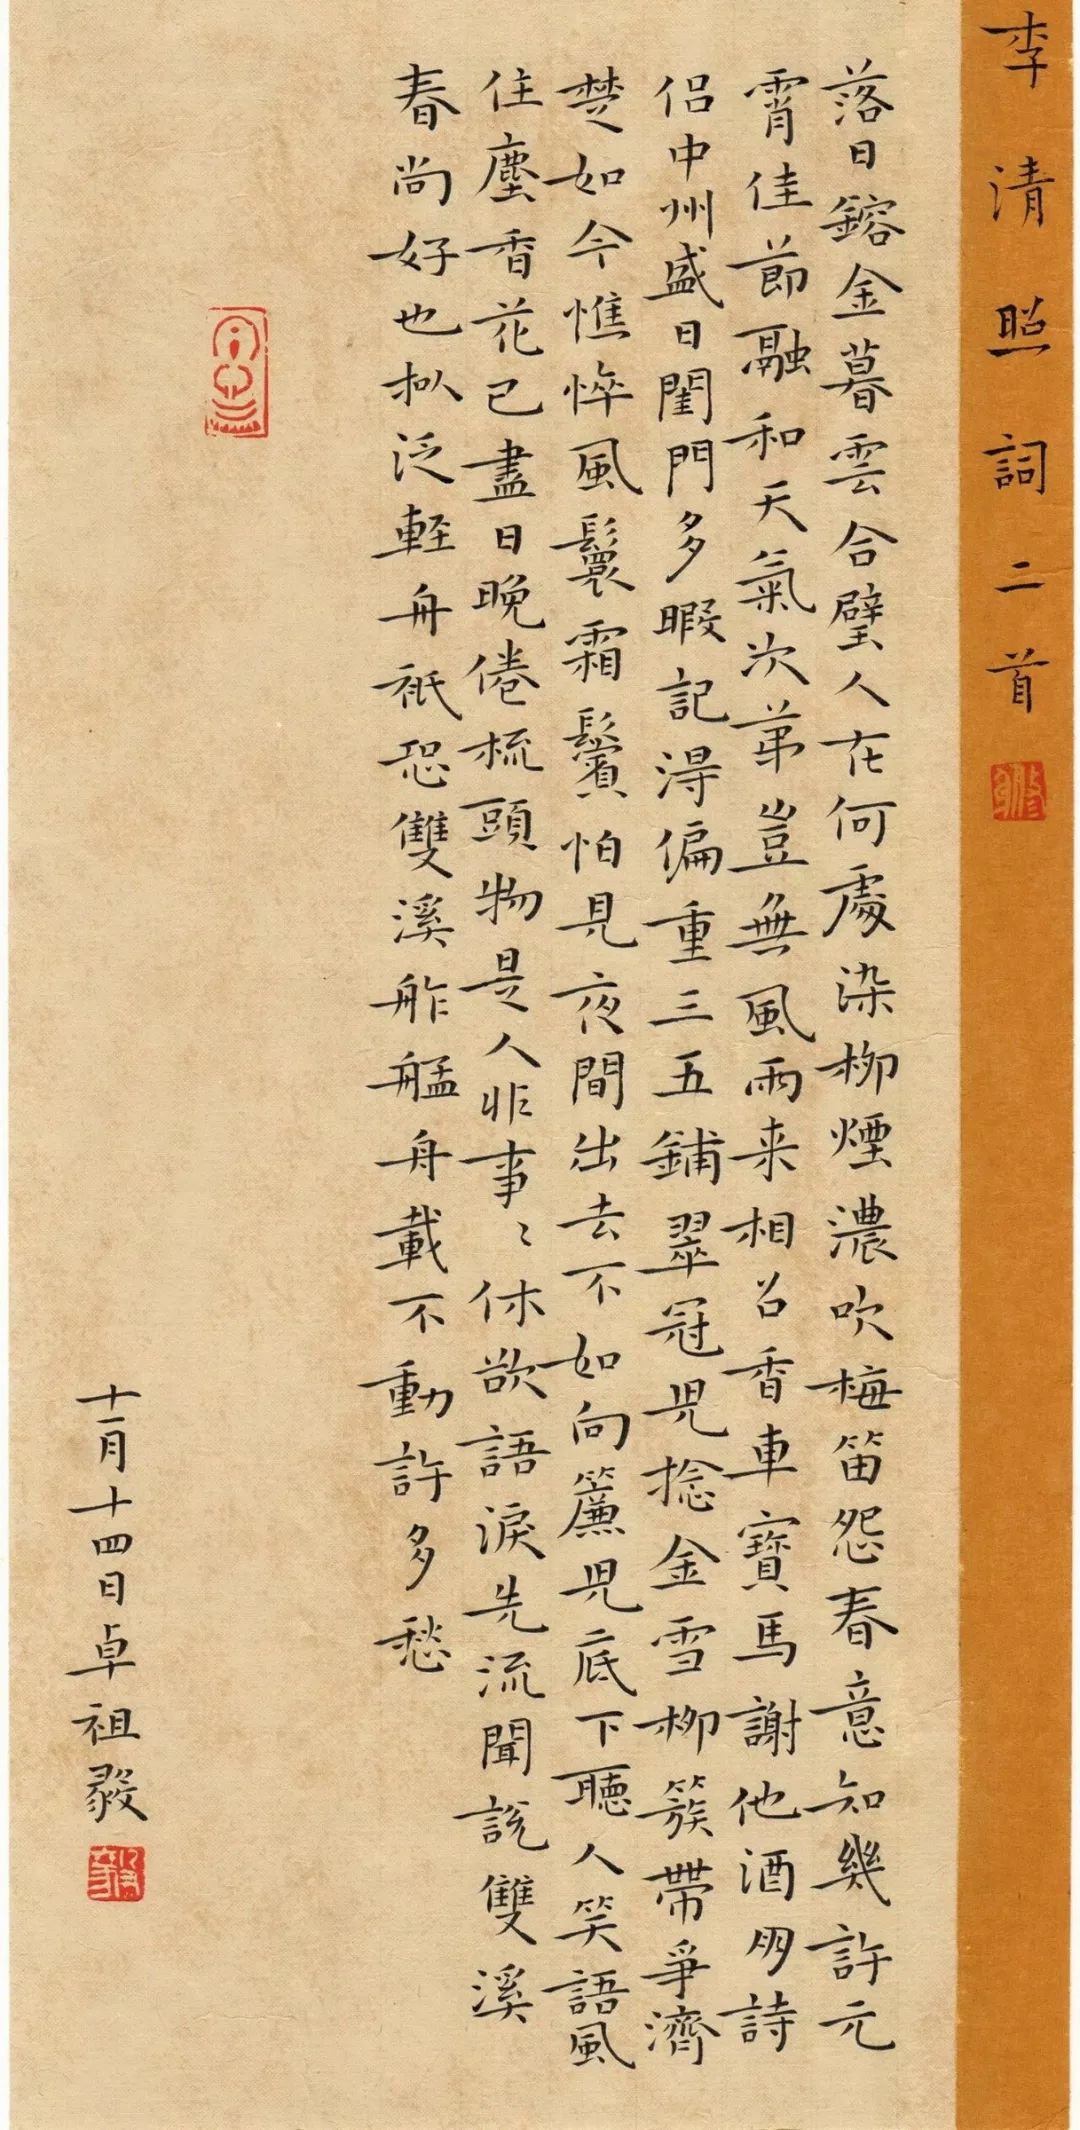 李清照詞二首
落日鎔金暮雲合璧人在何處染柳煙濃吹梅笛怨春意知幾許元
宵佳節融和天氣次第豈無風雨来相召香車寶馬謝他酒朋詩
侶中州盛日閨門多暇記得偏重三五鋪翠冠児捻金雪柳簇帶爭濟
楚如今憔悴風鬟霜鬢怕見夜間出去不如向簾児底下聽人笑語風
住塵香花已盡日晚倦梳頭物是人非事〻休欲語淚先流聞說雙溪
春尚好也拟泛軽舟祇恐雙溪舴艋舟載不動許多愁
十一月十四日卓祖毅